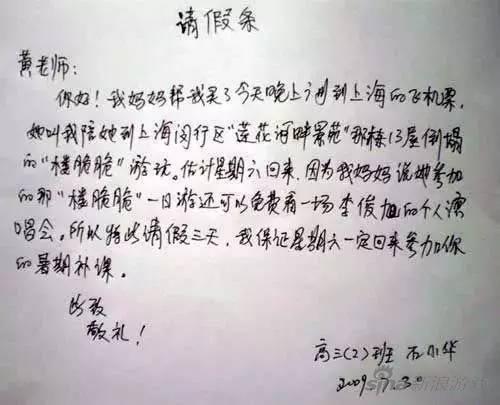 请假条
黄老师:
你好!我妈妈帮我买了今天晚上刊到上海的飞机票,
她叫我陪她到上海闵行区"莲花河畔景苑"那栋13层倒塌
的"楼脆脆"游玩。估计星期六回来,因为我妈妈说她参加
的那"楼脆脆"一日游还可以免费看一场李俊旭的个人演
唱会。所以特此请假三天,我保证星期六一定回来参加你
的暑期补课。
此致
敬礼!
高三(2)班 石小华
2009.7.3
sina新浪游戏